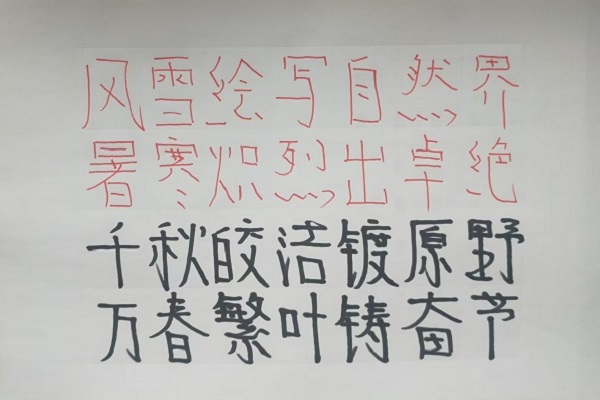 风雪绘写自然界
暑寒炽烈出卓绝
千秋皎洁镀原野
万春繁叶铸奋节